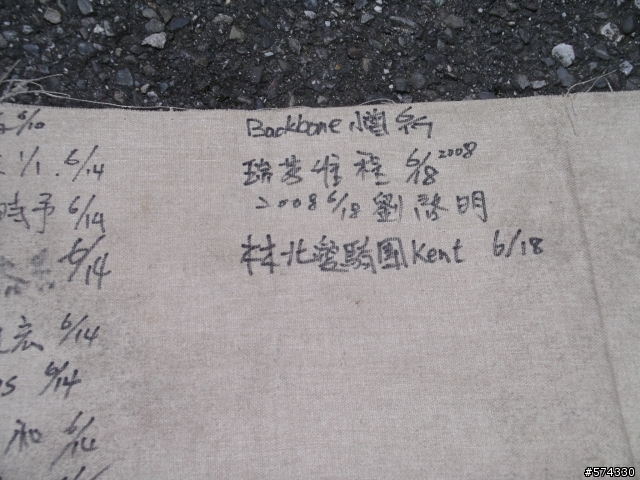 6/10
1/1. 6/14
時予 6/14
6/14
宏 6/14
6/14
和 6/14
Backbone
瑞芳 程 6/18 2008
2008 6/18 劉啓明
林北愛騎團Kent 6/18
#574330